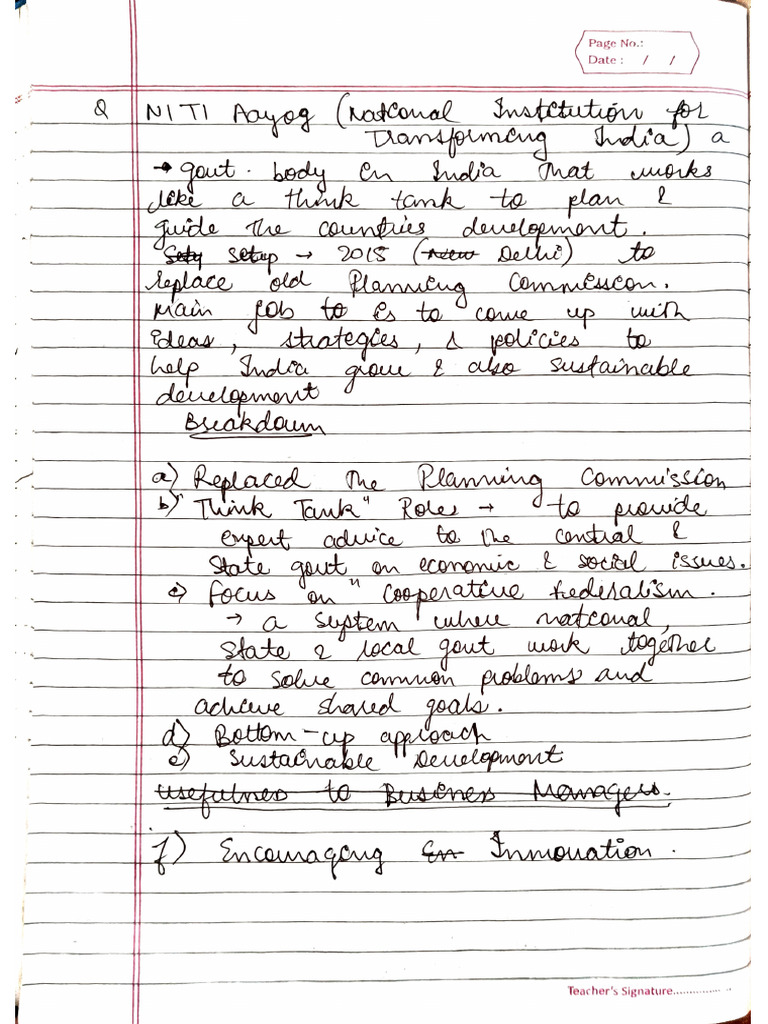 Page No.:
Date : / /
Q NITI Aayog (National Institution for
Transforming India) a
→ govt. body in India that works
like a think tank to plan &
guide the countries development.
Sety setup → 2015 (New Delhi) to
replace old Planning Commission.
Main job to is to come up with
ideas, strategies, & policies to
help India grow & also sustainable
development
Breakdown
a) Replaced the Planning Commission
b) "Think Tank" Roles → to provide
expert advice to the central &
State govt on economic & social issues.
c) Focus on " Cooperative Federalism.
→ a system where national,
state & local govt work together
to solve common problems and
achieve shared goals.
d) Bottom-up approach
e) Sustainable Development
Usefulness to Business Managers.
f) Encouraging En Innovation.
Teacher's Signature................